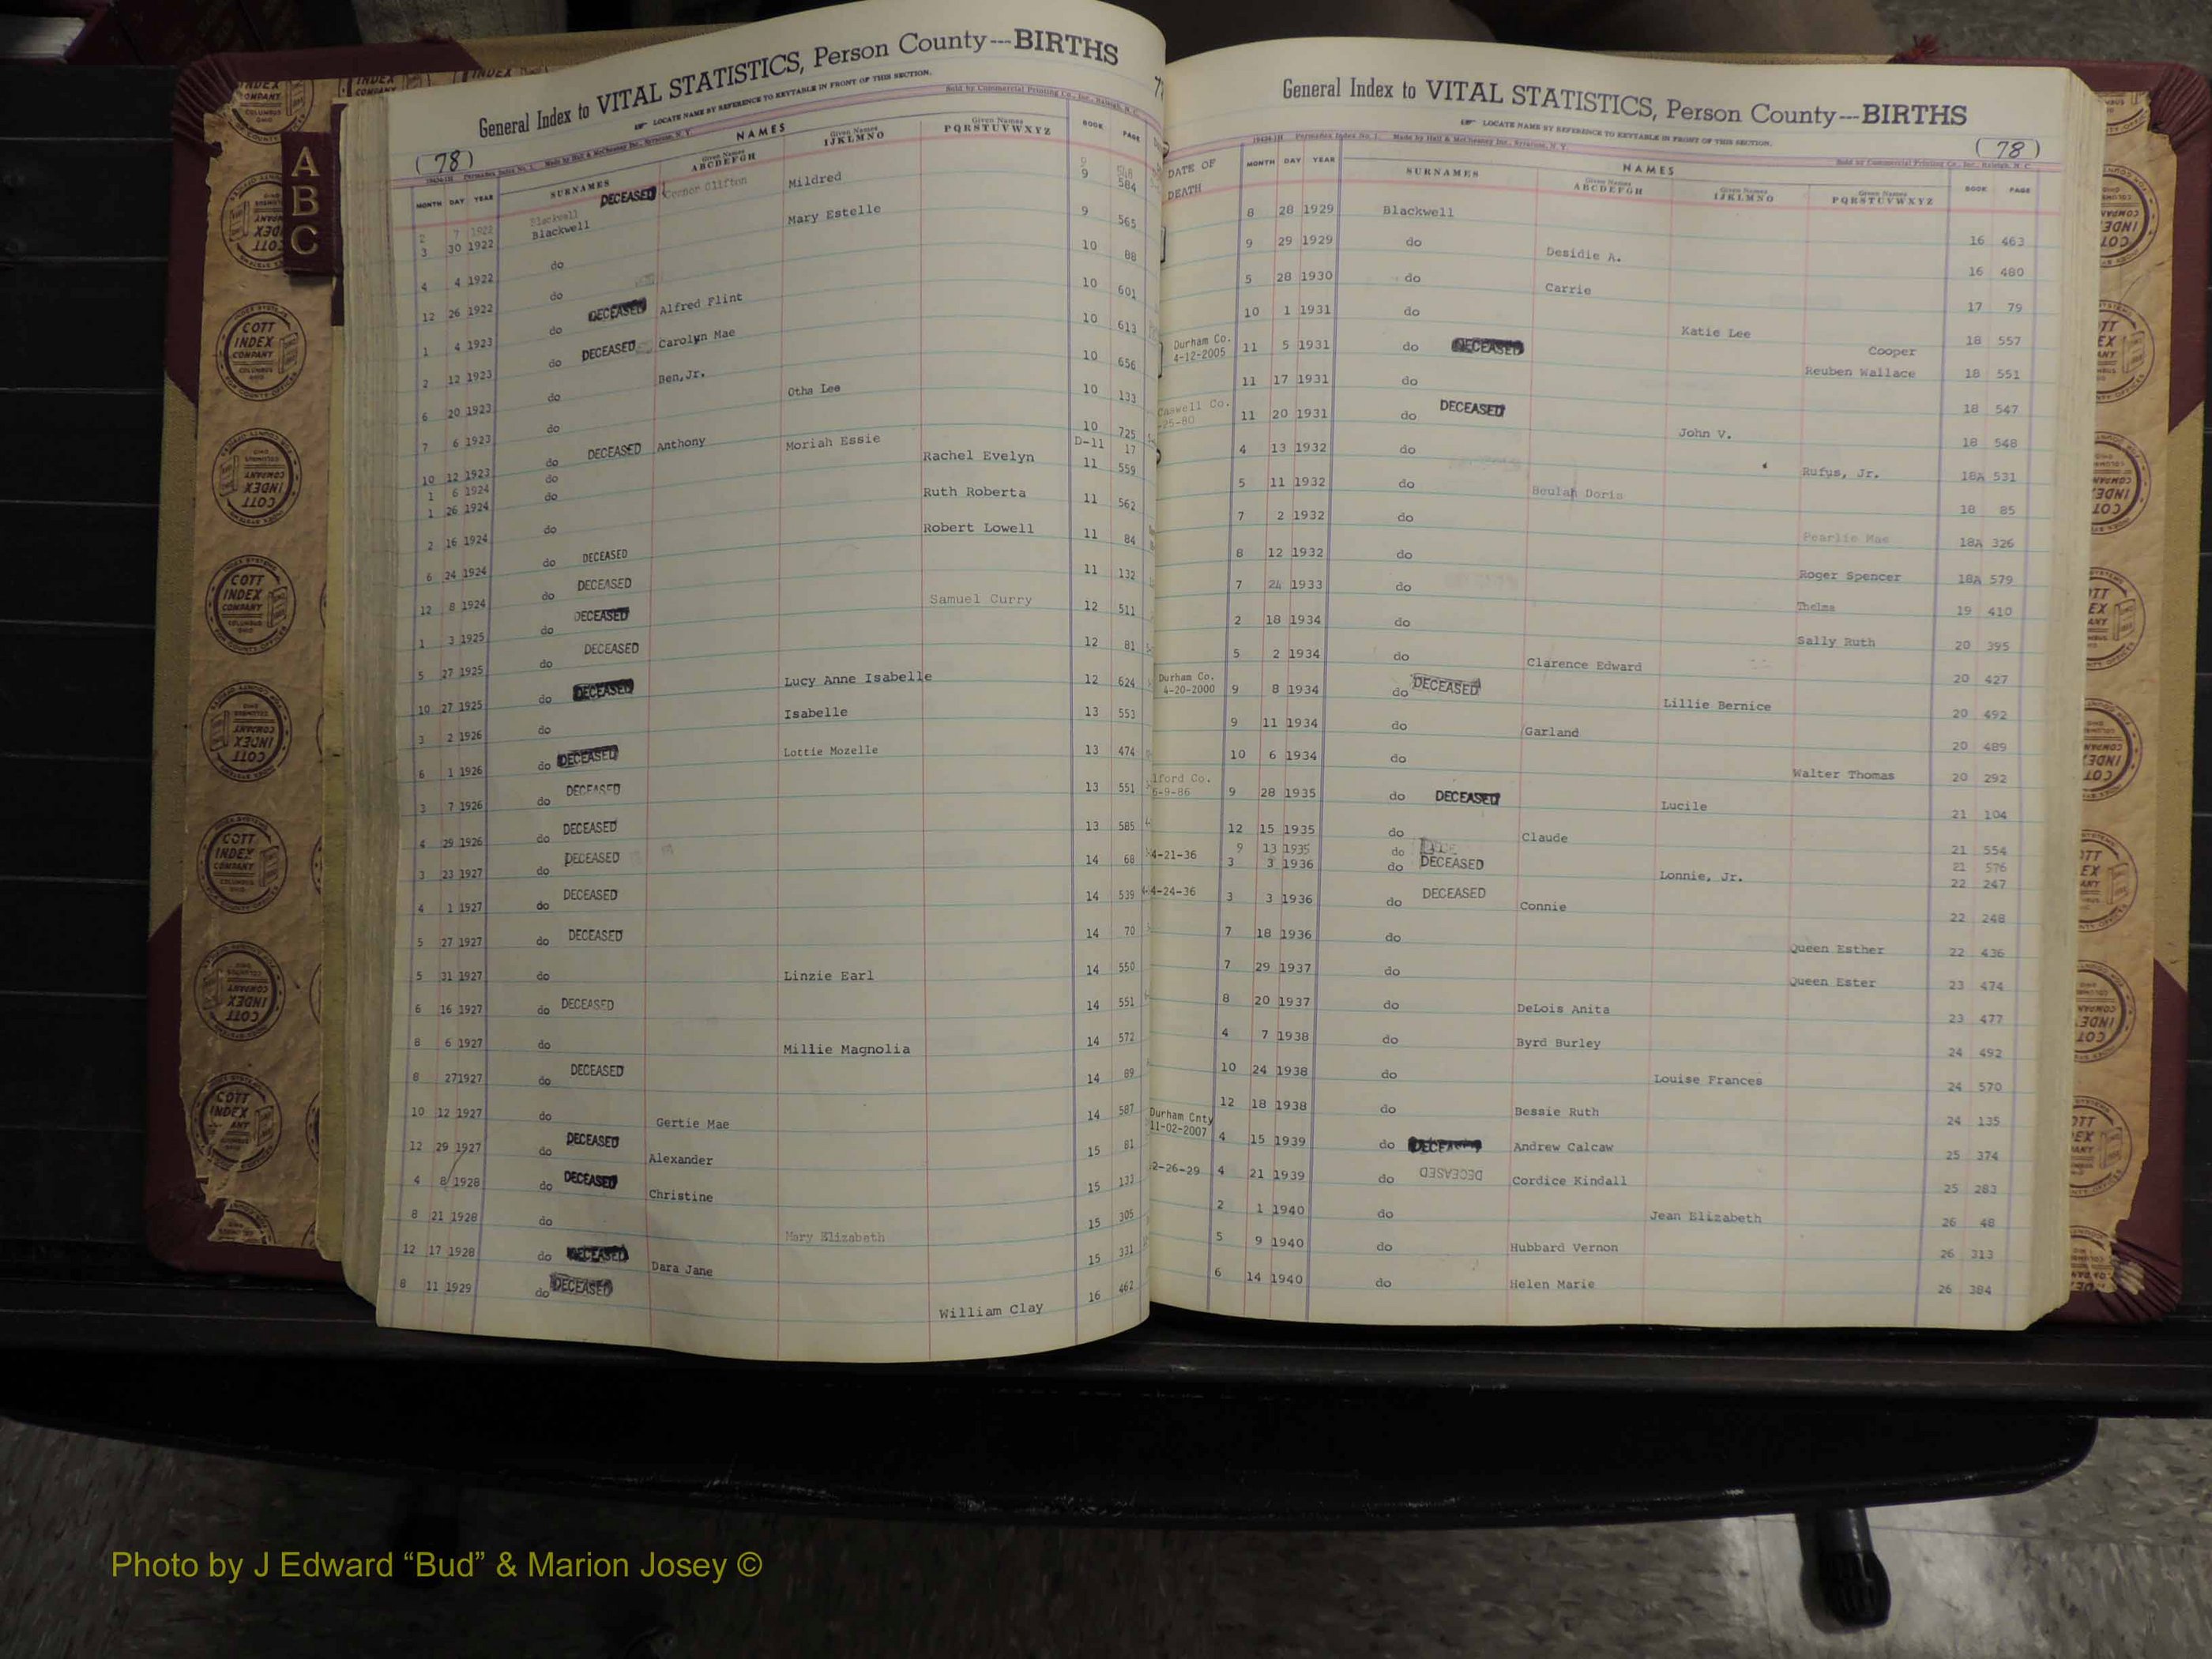 General Index to VITAL STATISTICS, Person County---BIRTHS
LOCATE NAME BY REFERENCE TO KEYTABLE IN FRONT OF THIS SECTION.
Sold by Commercial Printing Co., Inc., Raleigh, N. C.
(78)
NAMES
MONTH DAY YEAR SURNAMES Given Names ABCDEFGH Given Names IJKLMNO Given Names PQRSTUVWXYZ BOOK PAGE
2 7 1922 Blackwell DECEASED Connor Clifton 9
3 30 1922 Blackwell Mildred 9 584
4 4 1922 do Mary Estelle 9 565
12 26 1922 do 10 88
1 4 1923 do DECEASED Alfred Flint 10 601
2 12 1923 do DECEASED Carolyn Mae 10 613
6 20 1923 do Ben, Jr. 10 656
7 6 1923 do Otha Lee 10 133
10 12 1923 do DECEASED Anthony Moriah Essie 10 725
1 6 1924 do D-11 17
1 26 1924 do Rachel Evelyn 11 559
2 16 1924 do Ruth Roberta 11 562
6 24 1924 do DECEASED Robert Lowell 11 84
12 8 1924 do DECEASED 11 132
1 3 1925 do DECEASED Samuel Curry 12 511
5 27 1925 do DECEASED 12 81
10 27 1925 do DECEASED Lucy Anne Isabelle 12 624
3 2 1926 do Isabelle 13 553
6 1 1926 do DECEASED Lottie Mozelle 13 474
3 7 1926 do DECEASED 13 551
4 29 1926 do DECEASED 13 585
3 23 1927 do DECEASED 14 68
4 1 1927 do DECEASED 14 539
5 27 1927 do DECEASED 14 70
5 31 1927 do Linzie Earl 14 550
6 16 1927 do DECEASED 14 551
8 6 1927 do Millie Magnolia 14 572
8 27 1927 do DECEASED 14 89
10 12 1927 do Gertie Mae 14 587
12 29 1927 do DECEASED Alexander 15 81
4 8 1928 do DECEASED Christine 15 133
8 21 1928 do Mary Elizabeth 15 305
12 17 1928 do DECEASED Dara Jane 15 331
8 11 1929 do DECEASED William Clay 16 462
General Index to VITAL STATISTICS, Person County---BIRTHS
LOCATE NAME BY REFERENCE TO KEYTABLE IN FRONT OF THIS SECTION.
Sold by Commercial Printing Co., Inc., Raleigh, N. C.
(78)
NAMES
DATE OF DEATH MONTH DAY YEAR SURNAMES Given Names ABCDEFGH Given Names IJKLMNO Given Names PQRSTUVWXYZ BOOK PAGE
8 28 1929 Blackwell 16 463
9 29 1929 do Desidie A. 16 480
5 28 1930 do Carrie 17 79
10 1 1931 do Katie Lee 18 557
Durham Co. 4-12-2005 11 5 1931 do DECEASED Cooper Reuben Wallace 18 551
11 17 1931 do 18 547
Caswell Co. -25-80 11 20 1931 do DECEASED John V. 18 548
4 13 1932 do Rufus, Jr. 18A 531
5 11 1932 do Beulah Doris 18 85
7 2 1932 do Pearlie Mae 18A 326
8 12 1932 do Roger Spencer 18A 579
7 24 1933 do Thelma 19 410
2 18 1934 do Sally Ruth 20 395
5 2 1934 do Clarence Edward 20 427
Durham Co. 4-20-2000 9 8 1934 do DECEASED Lillie Bernice 20 492
9 11 1934 do Garland 20 489
10 6 1934 do Walter Thomas 20 292
lford Co. 6-9-86 9 28 1935 do DECEASED Lucile 21 104
12 15 1935 do Claude 21 554
9 13 1935 do 21 576
4-21-36 3 3 1936 do DECEASED Lonnie, Jr. 22 247
4-24-36 3 3 1936 do DECEASED Connie 22 248
7 18 1936 do Queen Esther 22 436
7 29 1937 do Queen Ester 23 474
8 20 1937 do DeLois Anita 23 477
4 7 1938 do Byrd Burley 24 492
10 24 1938 do Louise Frances 24 570
12 18 1938 do Bessie Ruth 24 135
Durham Cnty 11-02-2007 4 15 1939 do DECEASED Andrew Calcaw 25 374
2-26-29 4 21 1939 do DECEASED Cordice Kindall 25 283
2 1 1940 do Jean Elizabeth 26 48
5 9 1940 do Hubbard Vernon 26 313
6 14 1940 do Helen Marie 26 384
A
B
C
COTT INDEX COMPANY
Photo by J Edward “Bud” & Marion Josey ©